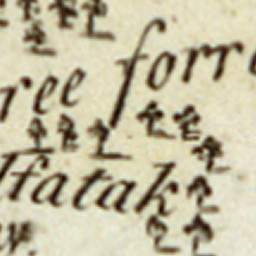 ree forre
lfatak
ey.